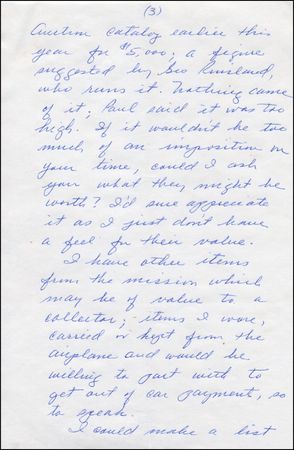 (3)
Auction catalog earlier this
year for $5,000; a figure
suggested by Geo Rinsland,
who runs it. Nothing came
of it; Paul said it was too
high. If it wouldn't be too
much of an imposition on
your time, could I ask
you what they might be
worth? I'd sure appreciate
it as I just don't have
a feel for their value.
I have other items
from the mission which
may be of value to a
collector; items I wore,
carried or kept from the
airplane and would be
willing to part with to
get out of car payment, so
to speak.
I could make a list